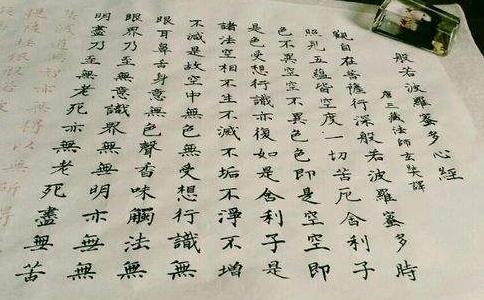 般若波羅蜜多心經
唐三藏法師玄奘譯
觀自在菩薩行深般若波羅蜜多時
照見五蘊皆空度一切苦厄舍利子
色不異空空不異色色即是空空即
是色受想行識亦復如是舍利子是
諸法空相不生不滅不垢不淨不增
不減是故空中無色無受想行識無
眼耳鼻舌身意無色聲香味觸法無
眼界乃至無意識界無無明亦無無
明盡乃至無老死亦無老死盡無苦
亦無得以無所得